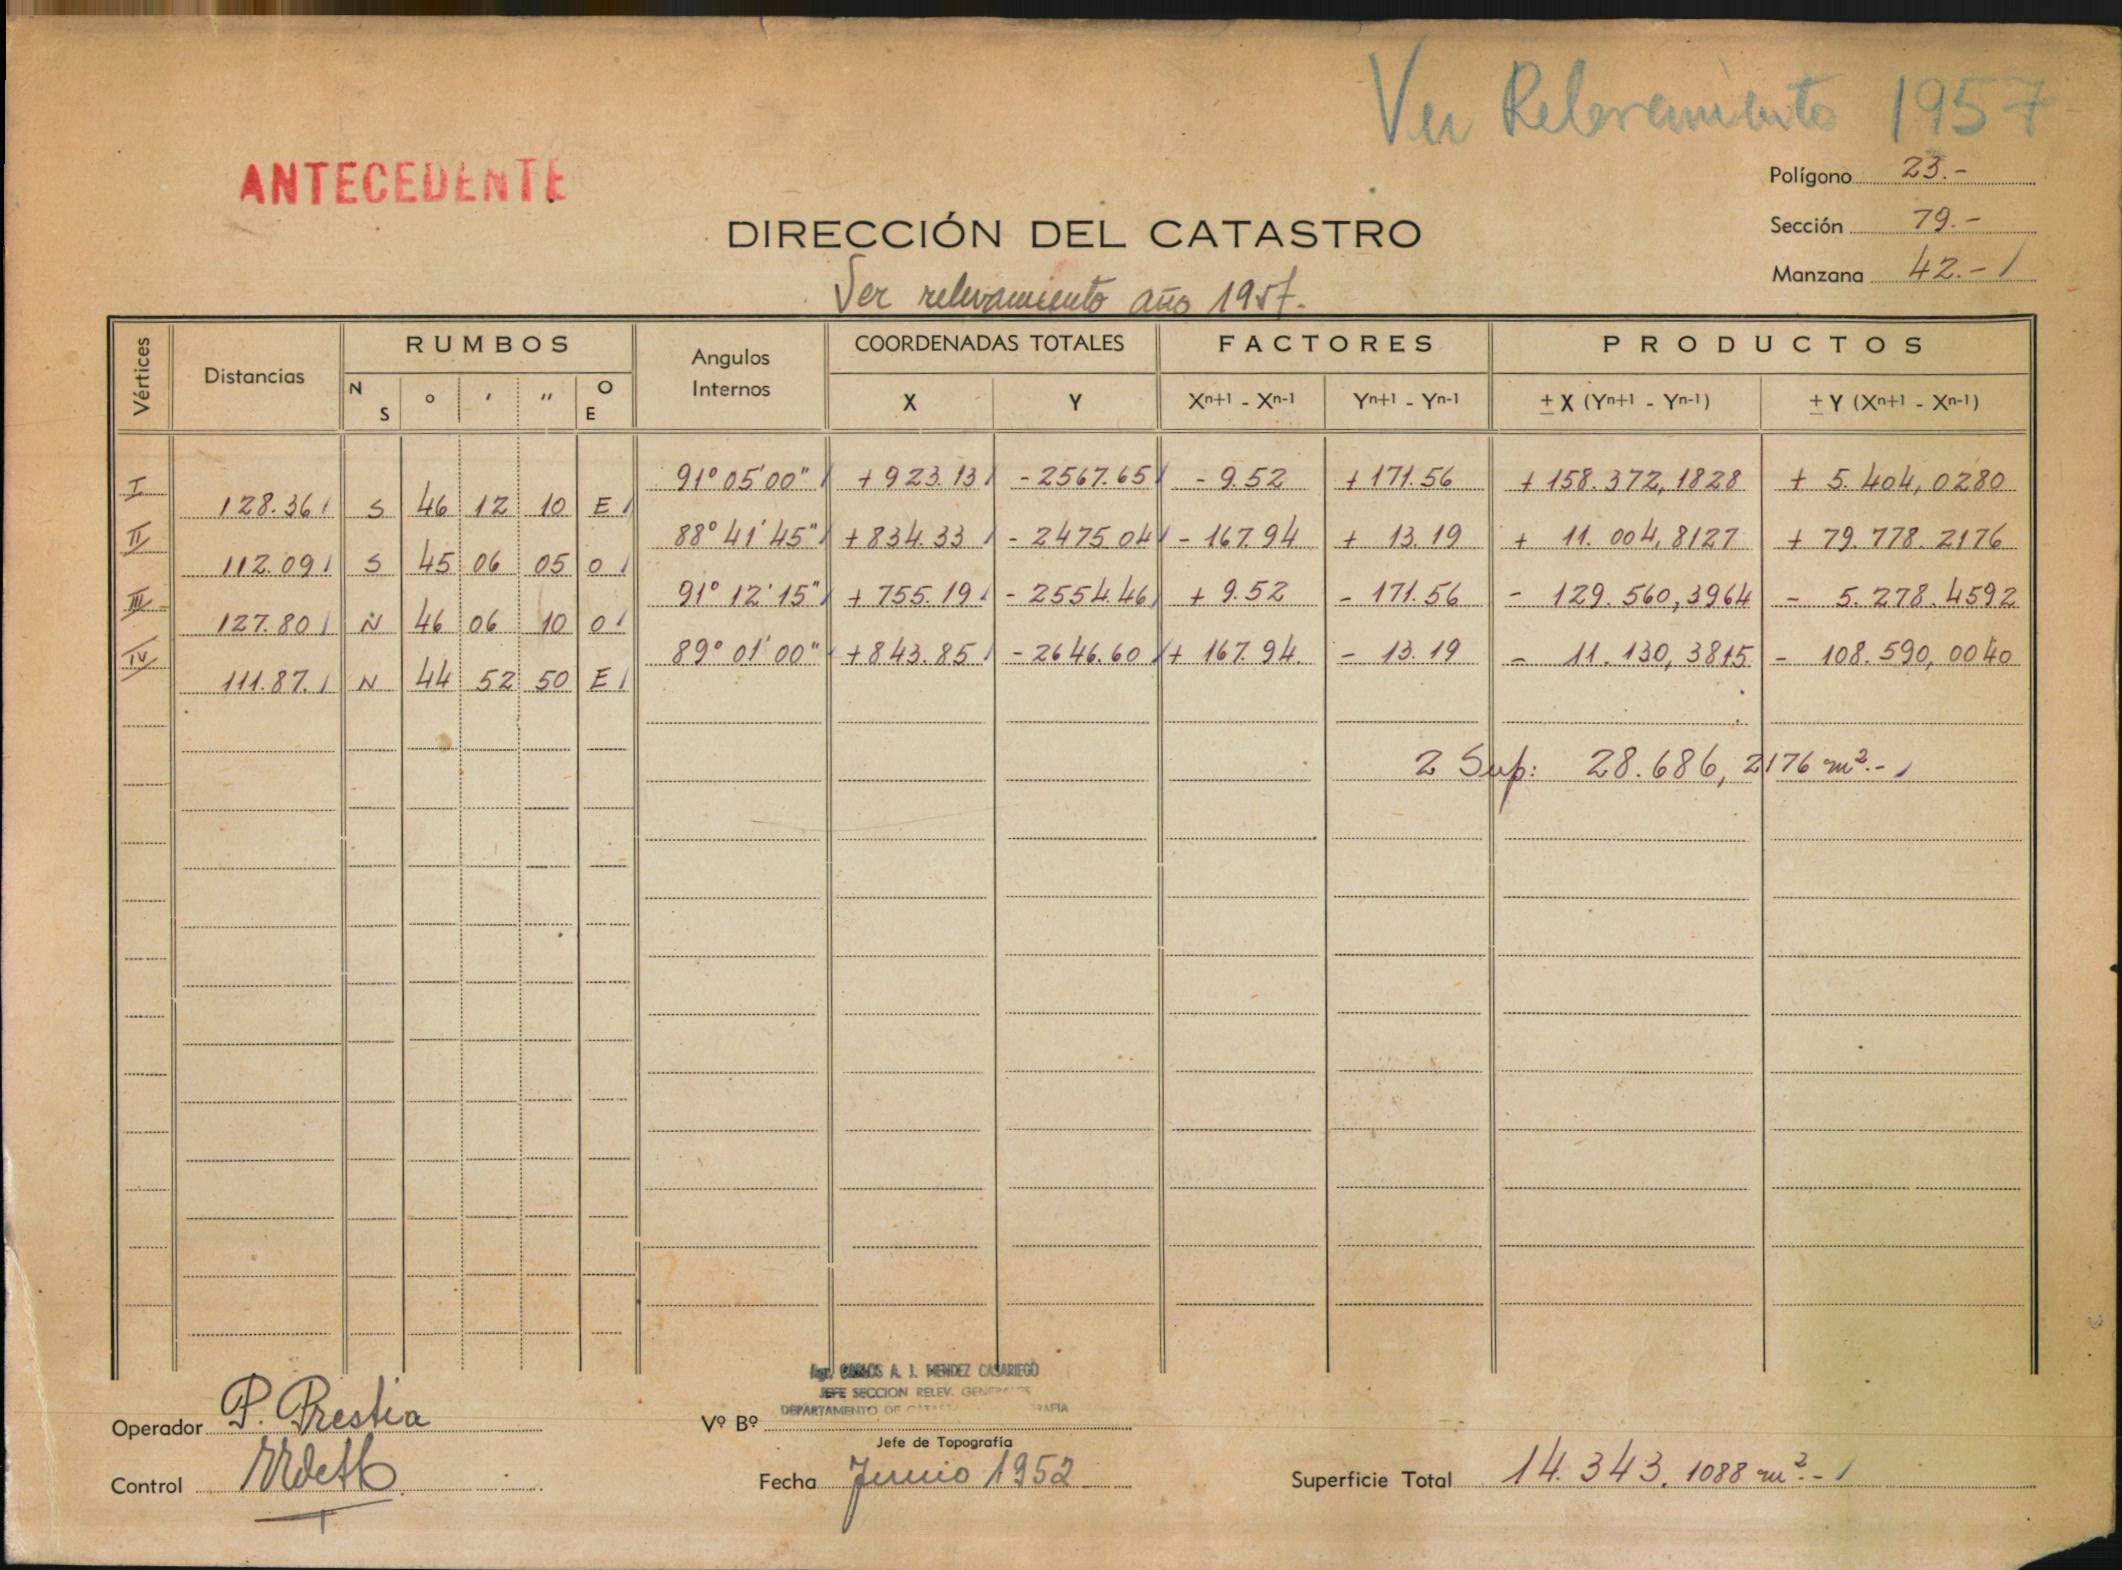 Ver Relevamiento 1957
ANTECEDENTE
Polígono 23.-
Sección 79.-
Manzana 42.-
DIRECCIÓN DEL CATASTRO
Ver relevamiento año 1957.-
Vértices Distancias RUMBOS Angulos Internos COORDENADAS TOTALES FACTORES PRODUCTOS
N S ° ' " O E X Y Xn+1 - Xn-1 Yn+1 - Yn-1 ± X (Yn+1 - Yn-1) ± Y (Xn+1 - Xn-1)
I 91° 05' 00" + 923.13 - 2567.65 - 9.52 + 171.56 + 158.372,1828 + 5.404,0280
128.36 S 46 12 10 E
II 88° 41' 45" + 834.33 - 2475.04 - 167.94 + 13.19 + 11.004,8127 + 79.778.2176
112.09 S 45 06 05 O
III 91° 12' 15" + 755.19 - 2554.46 + 9.52 - 171.56 - 129.560,3964 - 5.278.4592
127.80 N 46 06 10 O
IV 89° 01' 00" + 843.85 - 2646.60 + 167.94. - 13.19 - 11.130,3815 - 108.590,0040
111.87. N 44 52 50 E
2 Sup: 28.686,2176 m².-
Agr. CARLOS A. J. MENDEZ CASARIEGO
JEFE SECCION RELEV. GENERALES
DEPARTAMENTO DE
Operador P. Prestia
Vº Bº
Jefe de Topografía
Control
Fecha Junio 1952
Superficie Total 14.343.1088 m².-